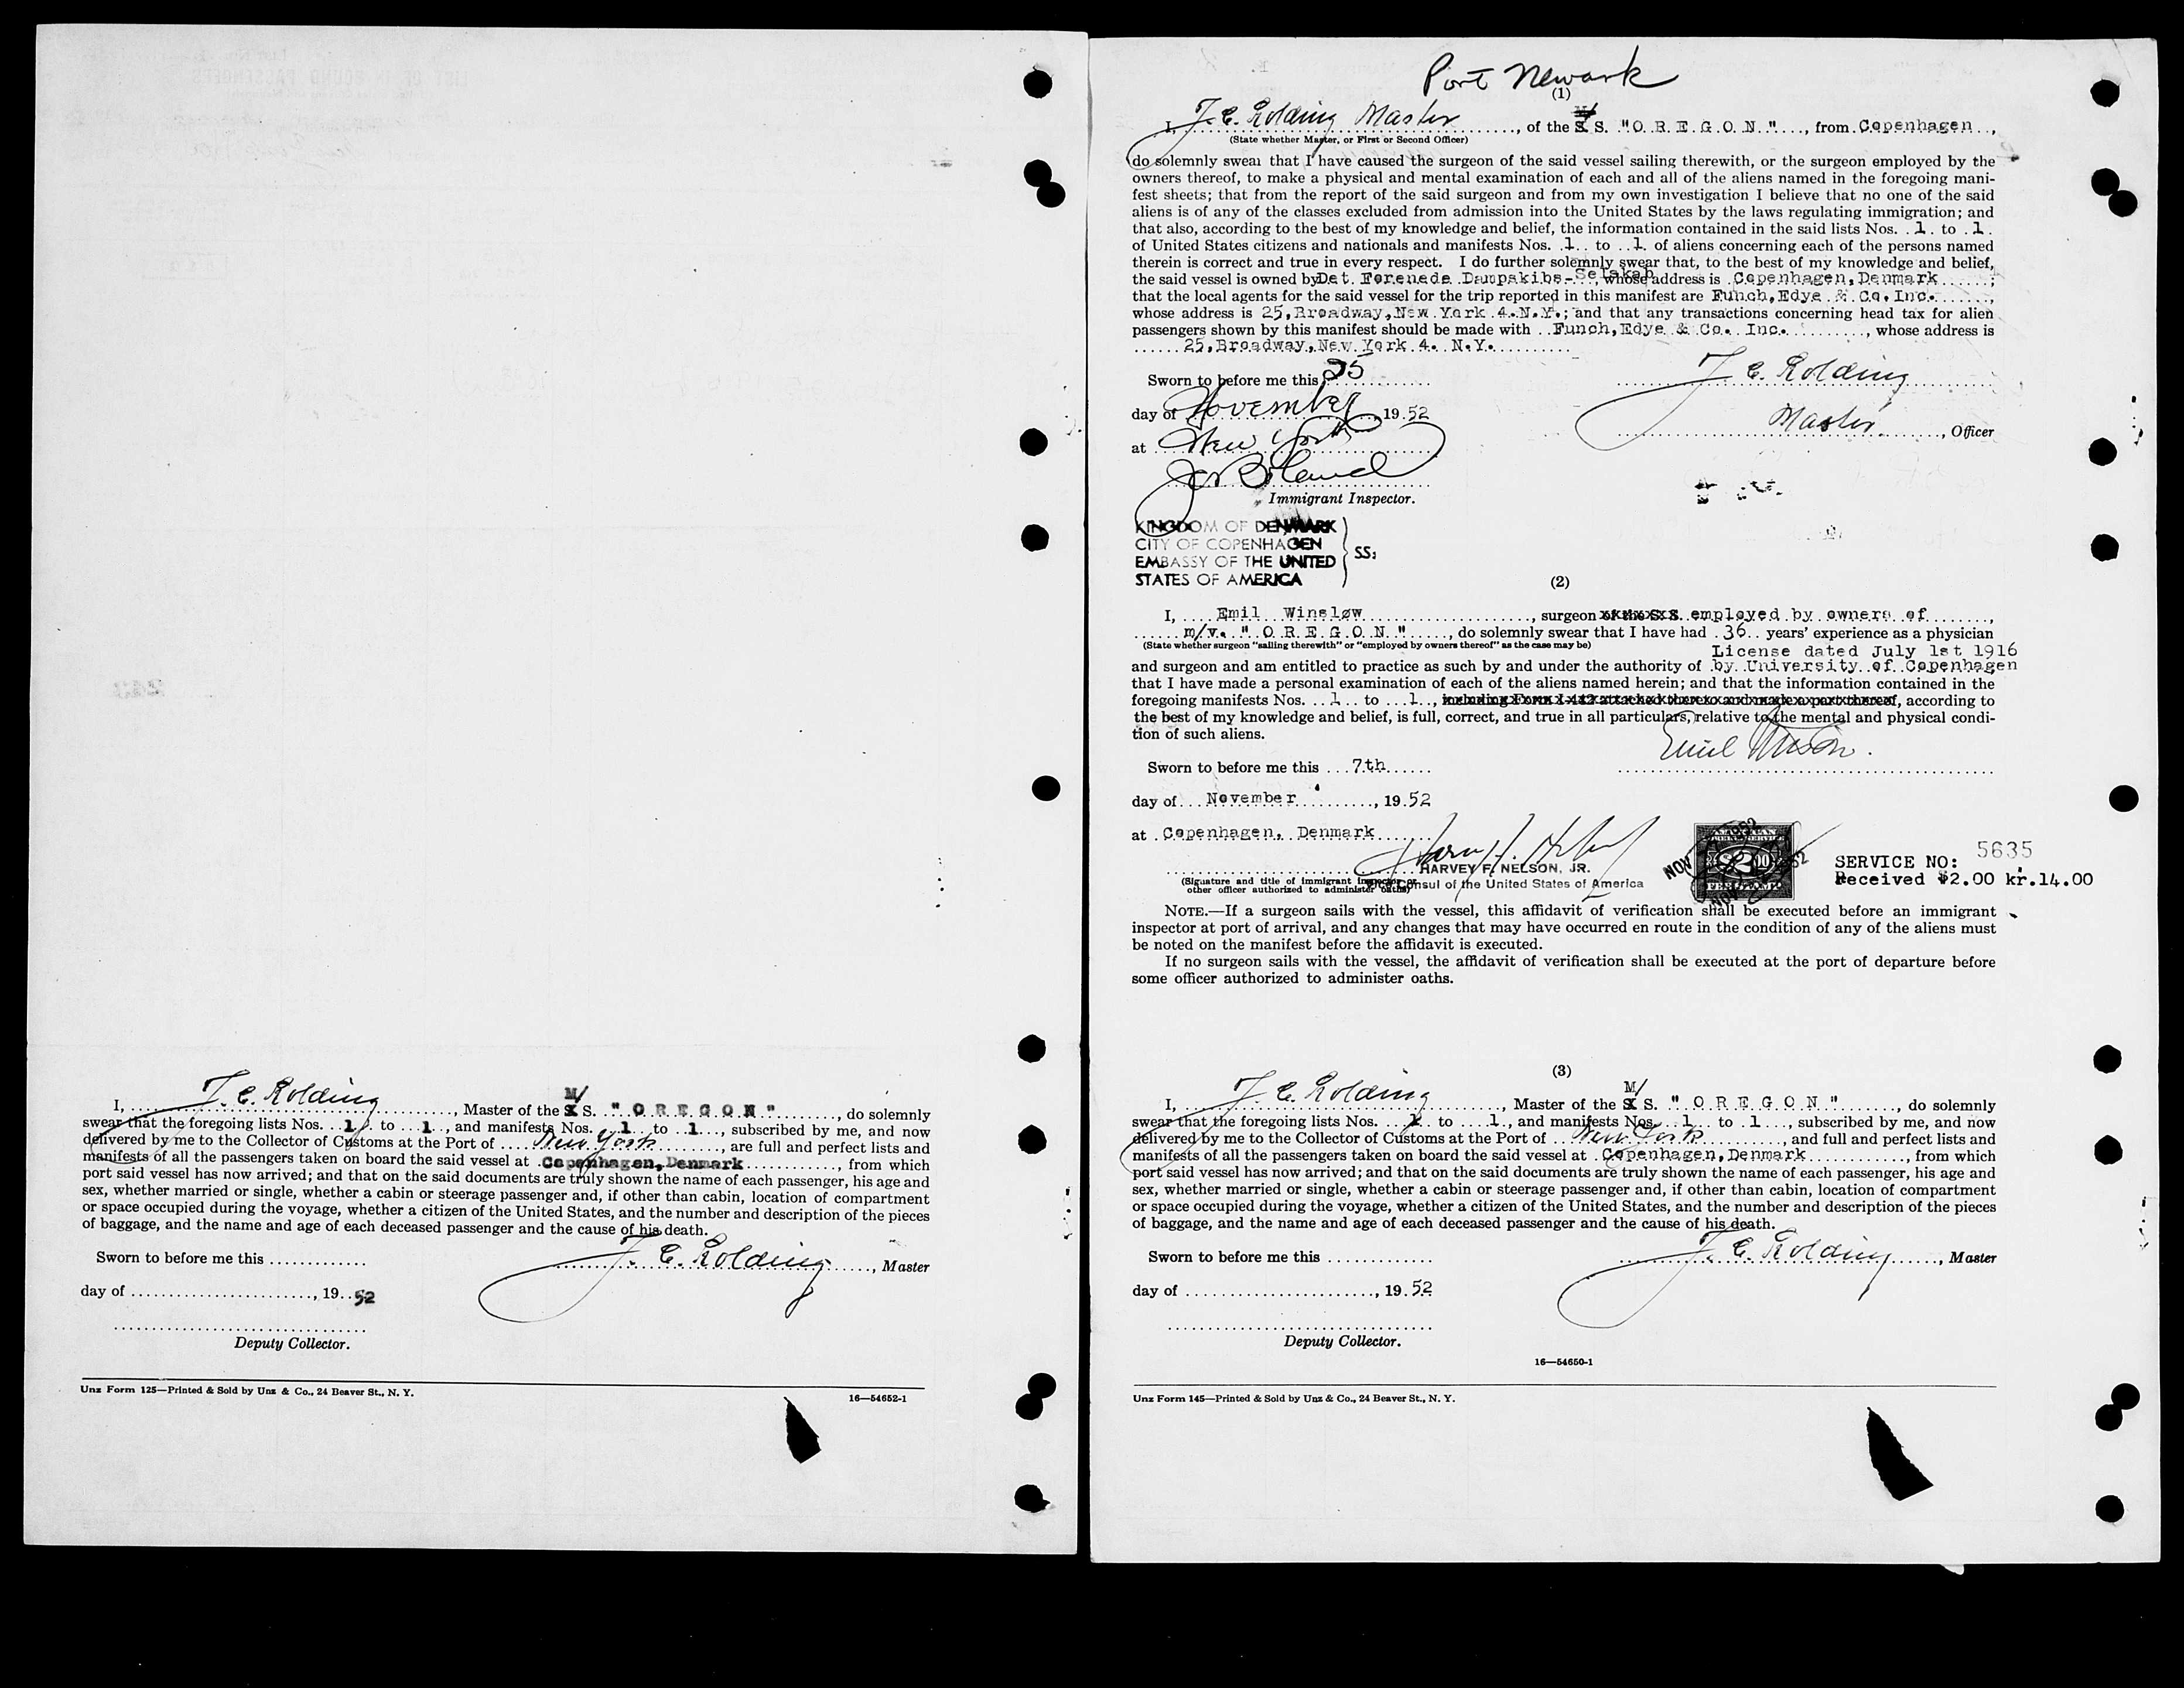 I, J. C. Kolding, Master of the M/S. "OREGON", do solemnly
swear that the foregoing lists Nos. 1 to 1, and manifests Nos. 1 to 1, subscribed by me, and now
delivered by me to the Collector of Customs at the Port of New York, are full and perfect lists and
manifests of all the passengers taken on board the said vessel at Copenhagen, Denmark, from which
port said vessel has now arrived; and that on the said documents are truly shown the name of each passenger, his age and
sex, whether married or single, whether a cabin or steerage passenger and, if other than cabin, location of compartment
or space occupied during the voyage, whether a citizen of the United States, and the number and description of the pieces
of baggage, and the name and age of each deceased passenger and the cause of his death.
Sworn to before me this
J. C. Kolding, Master
day of , 19 52
Deputy Collector.
Unz Form 125—Printed & Sold by Unz & Co., 24 Beaver St., N. Y.
16—54652-1
Port Newark
(1)
I, J. C. Kolding Master, of the M/S. "O R E G O N", from Copenhagen,
(State whether Master, or First or Second Officer)
do solemnly swear that I have caused the surgeon of the said vessel sailing therewith, or the surgeon employed by the
owners thereof, to make a physical and mental examination of each and all of the aliens named in the foregoing mani-
fest sheets; that from the report of the said surgeon and from my own investigation I believe that no one of the said
aliens is of any of the classes excluded from admission into the United States by the laws regulating immigration; and
that also, according to the best of my knowledge and belief, the information contained in the said lists Nos. 1 to 1
of United States citizens and nationals and manifests Nos. 1 to 1 of aliens concerning each of the persons named
therein is correct and true in every respect. I do further solemnly swear that, to the best of my knowledge and belief,
the said vessel is owned by Det Forenede Dampskibs-Selskab, whose address is Copenhagen, Denmark;
that the local agents for the said vessel for the trip reported in this manifest are Funch, Edye & Co. Inc.,
whose address is 25, Broadway, New York 4. N.Y.; and that any transactions concerning head tax for alien
passengers shown by this manifest should be made with Funch, Edye & Co. Inc., whose address is
25, Broadway, New York 4. N.Y.
Sworn to before me this 25
J. C. Kolding
day of November, 19 52
Master, Officer
at New York
Immigrant Inspector.
KINGDOM OF DENMARK
CITY OF COPENHAGEN
EMBASSY OF THE UNITED
STATES OF AMERICA
SS:
(2)
I, Emil Winsløw, surgeon of the S.S. employed by owners of,
m/v. "O R E G O N", do solemnly swear that I have had 36 years' experience as a physician
(State whether surgeon "sailing therewith" or "employed by owners thereof" as the case may be)
License dated July 1st 1916
and surgeon and am entitled to practice as such by and under the authority of by University of Copenhagen
that I have made a personal examination of each of the aliens named herein; and that the information contained in the
foregoing manifests Nos. 1 to 1, including Form I-442 attached thereto and made a part thereof, according to
the best of my knowledge and belief, is full, correct, and true in all particulars, relative to the mental and physical condi-
tion of such aliens.
Sworn to before me this 7th
day of November, 19 52
at Copenhagen, Denmark
HARVEY F. NELSON, JR.
Consul of the United States of America
(Signature and title of immigrant inspector or
other officer authorized to administer oaths)
SERVICE NO: 5635
Received $2.00 kr.14.00
NOTE.—If a surgeon sails with the vessel, this affidavit of verification shall be executed before an immigrant
inspector at port of arrival, and any changes that may have occurred en route in the condition of any of the aliens must
be noted on the manifest before the affidavit is executed.
If no surgeon sails with the vessel, the affidavit of verification shall be executed at the port of departure before
some officer authorized to administer oaths.
(3)
I, J. C. Kolding, Master of the M/S. "O R E G O N", do solemnly
swear that the foregoing lists Nos. 1 to 1, and manifests Nos. 1 to 1, subscribed by me, and now
delivered by me to the Collector of Customs at the Port of New York, and full and perfect lists and
manifests of all the passengers taken on board the said vessel at Copenhagen, Denmark, from which
port said vessel has now arrived; and that on the said documents are truly shown the name of each passenger, his age and
sex, whether married or single, whether a cabin or steerage passenger and, if other than cabin, location of compartment
or space occupied during the voyage, whether a citizen of the United States, and the number and description of the pieces
of baggage, and the name and age of each deceased passenger and the cause of his death.
Sworn to before me this
J. C. Kolding, Master
day of , 19 52
Deputy Collector.
16—54650-1
Unz Form 145—Printed & Sold by Unz & Co., 24 Beaver St., N. Y.